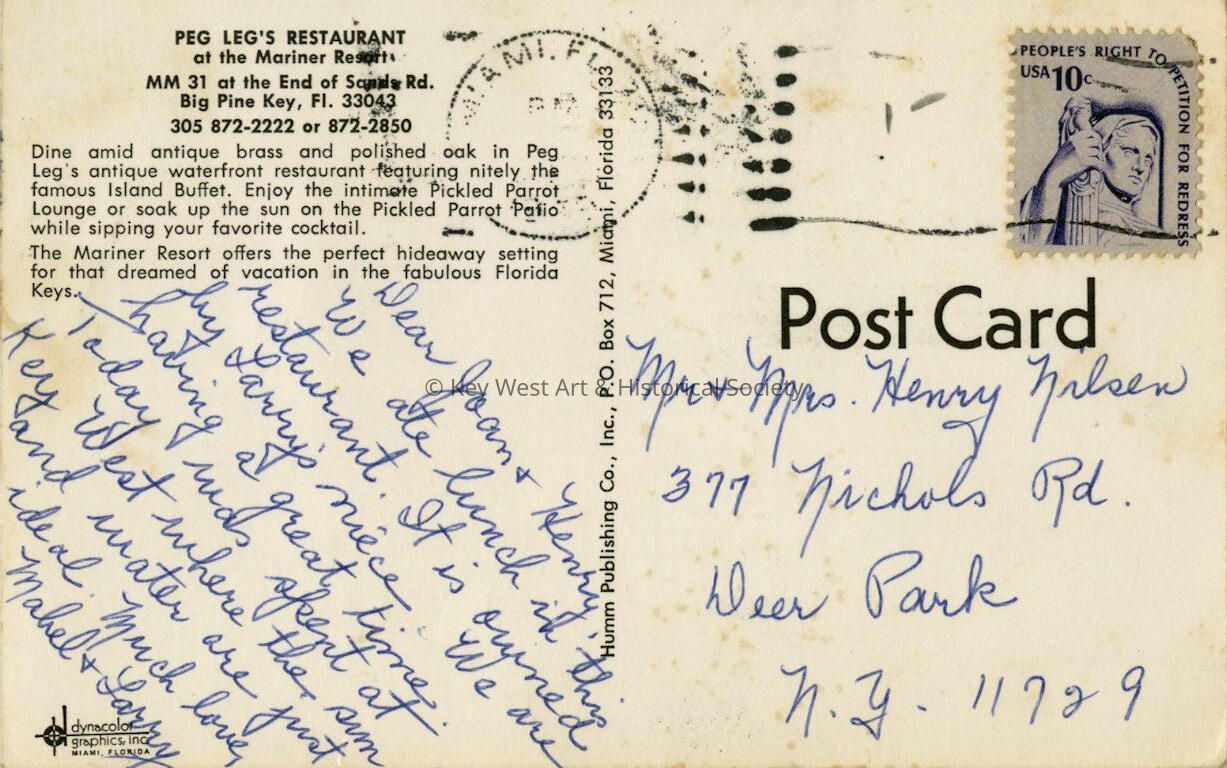 PEG LEG'S RESTAURANT
at the Mariner Resort
MM 31 at the End of Sands Rd.
Big Pine Key, Fl. 33043
305 872-2222 or 872-2850
Dine amid antique brass and polished oak in Peg
Leg's antique waterfront restaurant featuring nitely the
famous Island Buffet. Enjoy the intimate Pickled Parrot
Lounge or soak up the sun on the Pickled Parrot Patio
while sipping your favorite cocktail.
The Mariner Resort offers the perfect hideaway setting
for that dreamed of vacation in the fabulous Florida
Keys.
Dear Joan & Henry,
We ate lunch in this
restaurant. It is owned
by Larry's niece. We are
having a great time.
Today was spent at
Key West where the sun
and water are just
ideal. Much love,
Mabel & Larry
dynacolor
graphics, inc.
MIAMI, FLORIDA
Humm Publishing Co., Inc., P.O. Box 712, Miami, Florida 33133
MIAMI, FL
PEOPLE'S RIGHT TO PETITION FOR REDRESS
USA 10c
Post Card
Mr & Mrs. Henry Nilsen
377 Nichols Rd.
Deer Park
N.Y. 11729
© Key West Art & Historical Society